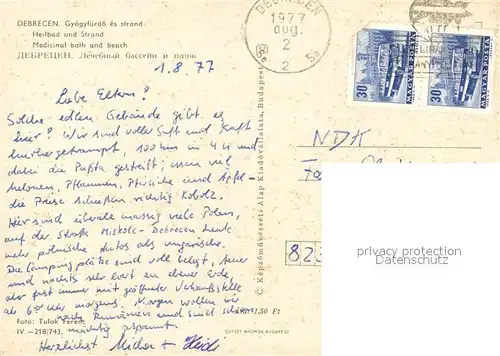 DEBRECEN. Gyógyfürdő és strand
Heilbad und Strand
Medicinal bath and beach
ДЕБРЕЦЕН. Лечебный бассейн и пляж
1.8.77
Liebe Eltern!
Solche edlen Gebäude gibt es
hier! Wir sind voller Saft und Kraft
hierhergetrampt, 100 km in 4 h und
dabei die Pußta gestreift; essen viel
Melonen, Pflaumen, Pfirsiche und Äpfel -
die Preise schießen richtig Kobolz.
Hier sind überall massig viele Polen,
auf der Straße Miskolc-Debrecen heute
mehr polnische Autos als ungarische.
Die Campingplätze sind voll belegt, teuer
und nachts sehr hart zu ebener Erde,
aber fast immer mit geöffneter Verkaufsstelle
ab 6 Uhr morgens. Morgen wollen wir
nach Rumänien und sind schon
mächtig gespannt.
Herzlichst Micha + Heidi
Foto: Tulok Ferenc
IV.-218/743.
1,50 Ft
OFFSET-NYOMDA BUDAPEST
© Képzőművészeti Alap Kiadóvállalata, Budapest
DEBRECEN
1977
aug.
2
2
5a
30 MAGYAR POSTA
30 MAGYAR POSTA
NDK
Fa
82
privacy protection
Datenschutz